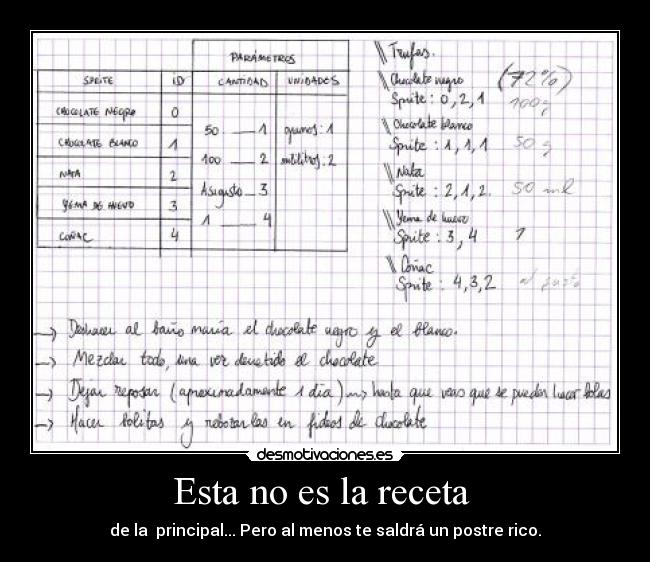 PARÁMETROS
SPRITE ID CANTIDAD UNIDADES
CHOCOLATE NEGRO 0
CHOCOLATE BLANCO 1
NATA 2
YEMA DE HUEVO 3
COÑAC 4
50 — 1
100 — 2
A su gusto — 3
1 — 4
gramos: 1
mililitros: 2
\\ Trufas.
\\ Chocolate negro (72%)
Sprite: 0,2,1 100 g
\\ Chocolate blanco
Sprite: 1,1,1 50 g
\\ Nata
Sprite: 2,1,2. 50 ml
\\ Yema de huevo
Sprite: 3,4 1
\\ Coñac
Sprite: 4,3,2 al gusto
—> Deshacer al baño maría el chocolate negro y el blanco.
—> Mezclar todo, una vez derretido el chocolate
—> Dejar reposar (aproximadamente 1 día) ~> hasta que veas que se pueden hacer bolas
—> Hacer bolitas y rebozarlas en fideos de chocolate
desmotivaciones.es
Esta no es la receta
de la principal... Pero al menos te saldrá un postre rico.